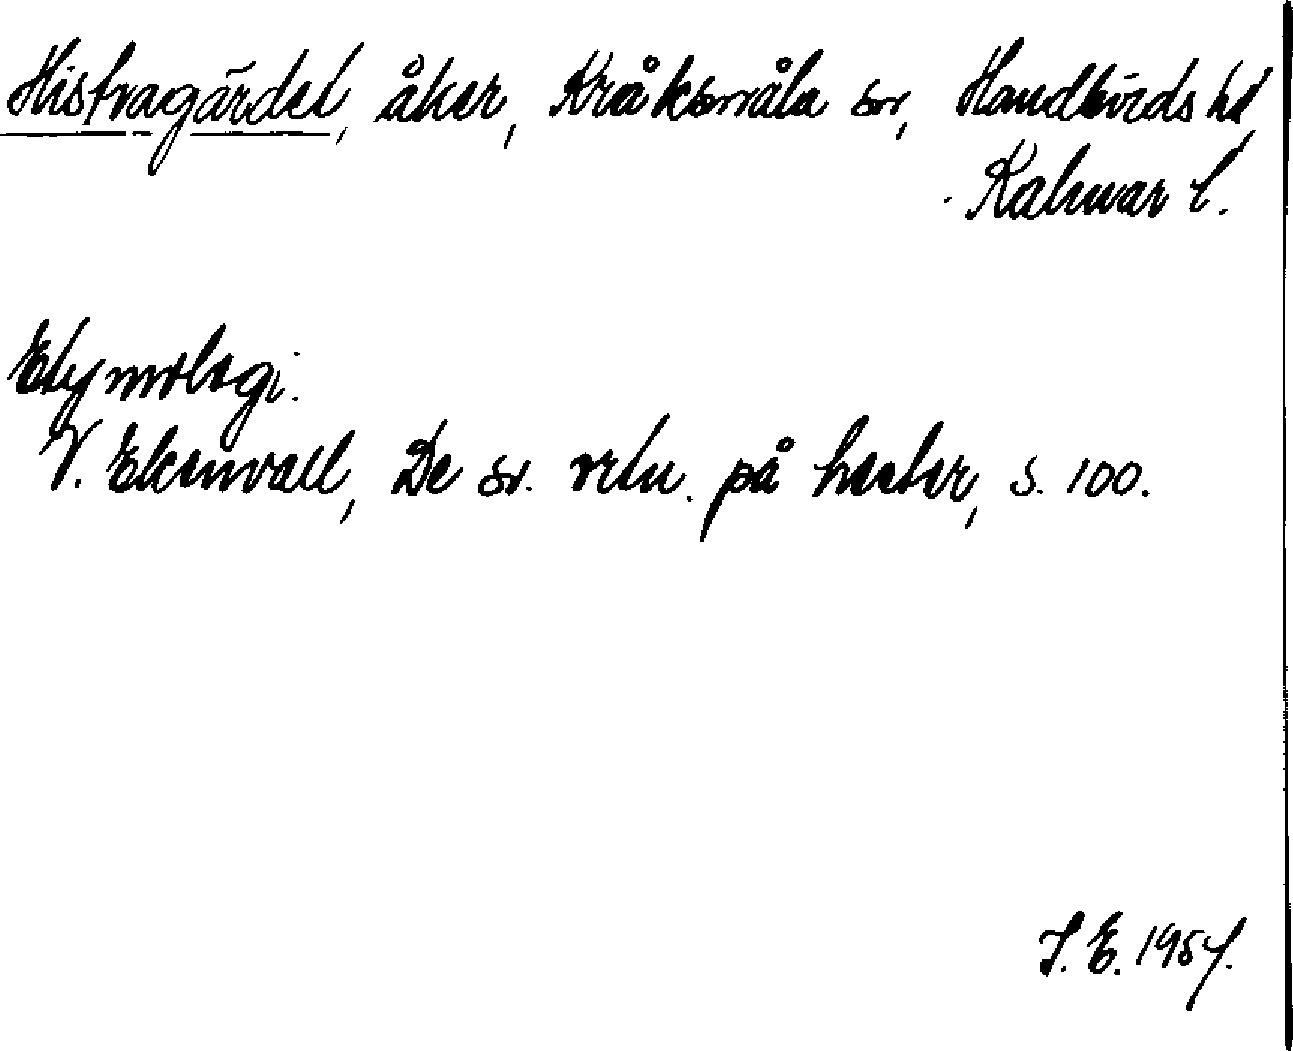 Histvagärdet, åker, Kråksmåla sn, Handbörds hd,
Kalmar l.
Etymologi.
V. Ekenvall, De sv. ortn. på hester, s. 100.
I. E. 1954.